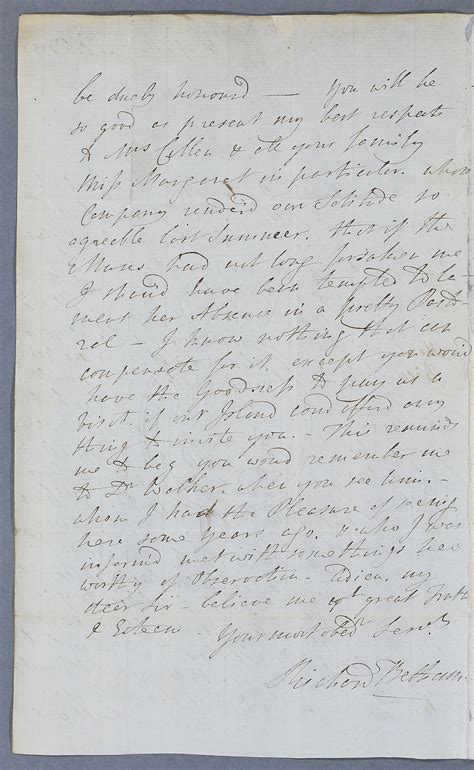 be duely honourd — You will be
so good as present my best respects
to Mrs Cullen & all your family
Miss Margaret in particular, whose
Company renderd our Solitude so
agreeble last Summer, that if the
Muses had not long forsaken me
I should have been tempted to la-
ment her Absence in a pretty Past-
rel — I know nothing that can
compensate for it, except you would
have the Goodness to pay us a
visit, if our Island coud afford any
thing to invite you. — This reminds
me to beg you woud remember me
to Dr Walker, when you see him. —
whom I had the Pleasure of seeing
here some Years ago, & who I was
informd met with somethings here
worthy of Observation — Adieu, my
dear Sir — believe me wt great Truth
& Esteem Your most obedt Servt
Richard Betham